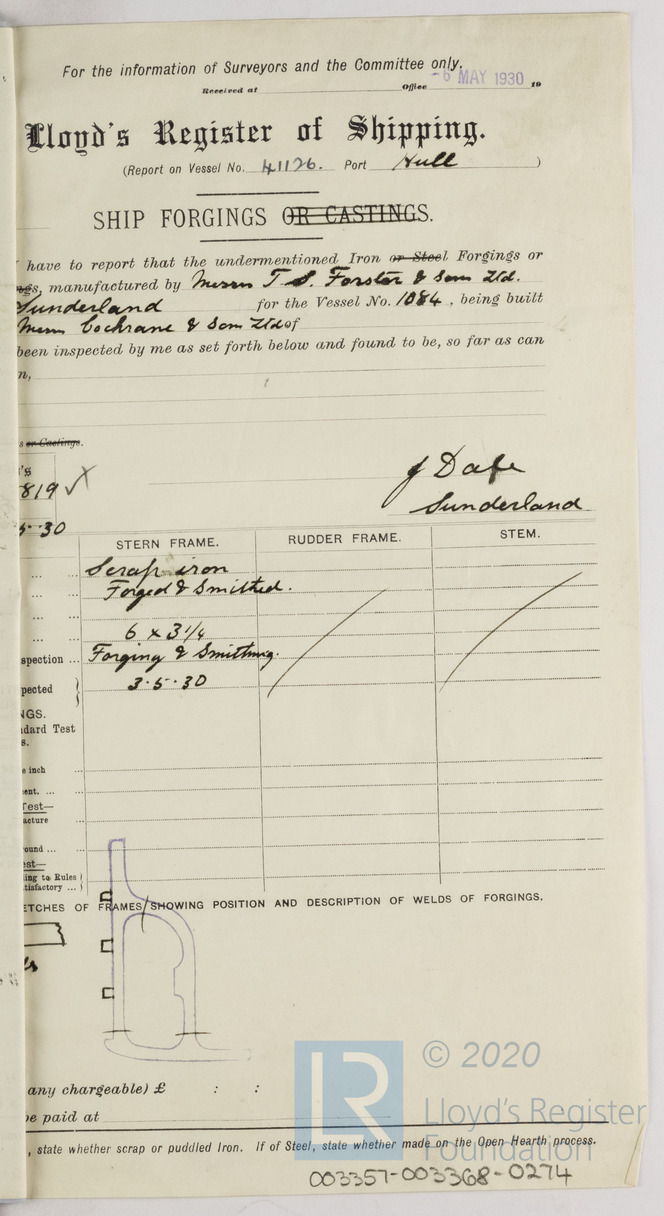 For the information of Surveyors and the Committee only.
Received at Office -6 MAY 1930 19
Lloyd's Register of Shipping.
(Report on Vessel No. 41126. Port Hull )
SHIP FORGINGS OR CASTINGS.
have to report that the undermentioned Iron or Steel Forgings or
gs, manufactured by Messrs T. S. Forster & Sons Ltd.
Sunderland for the Vessel No. 1084, being built
Messrs Cochrane & Sons Ltd of
been inspected by me as set forth below and found to be, so far as can
n,
s or Castings.
's
819
J Dafe
Sunderland
5·30
STERN FRAME. RUDDER FRAME. STEM.
... ... Scrap iron
... ... Forged & Smithed.
... ...
... ... 6 x 3 1/4
spection ... Forging & Smithing.
pected } 3·5·30
NGS.
dard Test
s.
e inch ...
ent. ... ...
Test—
acture
ound ... ...
est—
ing to Rules
tisfactory ... }
ETCHES OF FRAMES SHOWING POSITION AND DESCRIPTION OF WELDS OF FORGINGS.
any chargeable) £ : :
be paid at
, state whether scrap or puddled Iron. If of Steel, state whether made on the Open Hearth process.
LR © 2020
Lloyd's Register
Foundation
003357-003368-0274